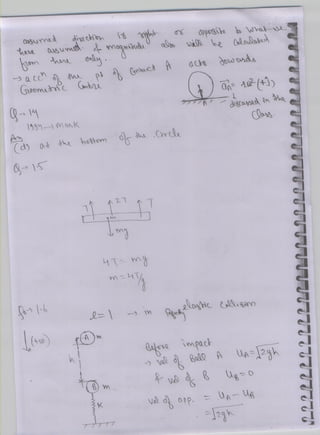 assumed direction is right or opposite to what we
have assumed & magnitude also will be calculated
from here only.
→ accn of the pt of contact A acts towards
Geometric Centre
A
discussed in the
Class.
Q→ 1.4
1 MARK
Ans
(d) at the bottom of the circle
Q→ 1.5
T 2T T
mg
4T = mg
m = 4T/g
Q→ 1.6 e=1 → in elastic collision
↓(+ve)
A m
h
B m
K
Before impact
→ vel of Ball A UA = √2gh
& vel of B UB = 0
vel of app. = UA - UB
= √2gh